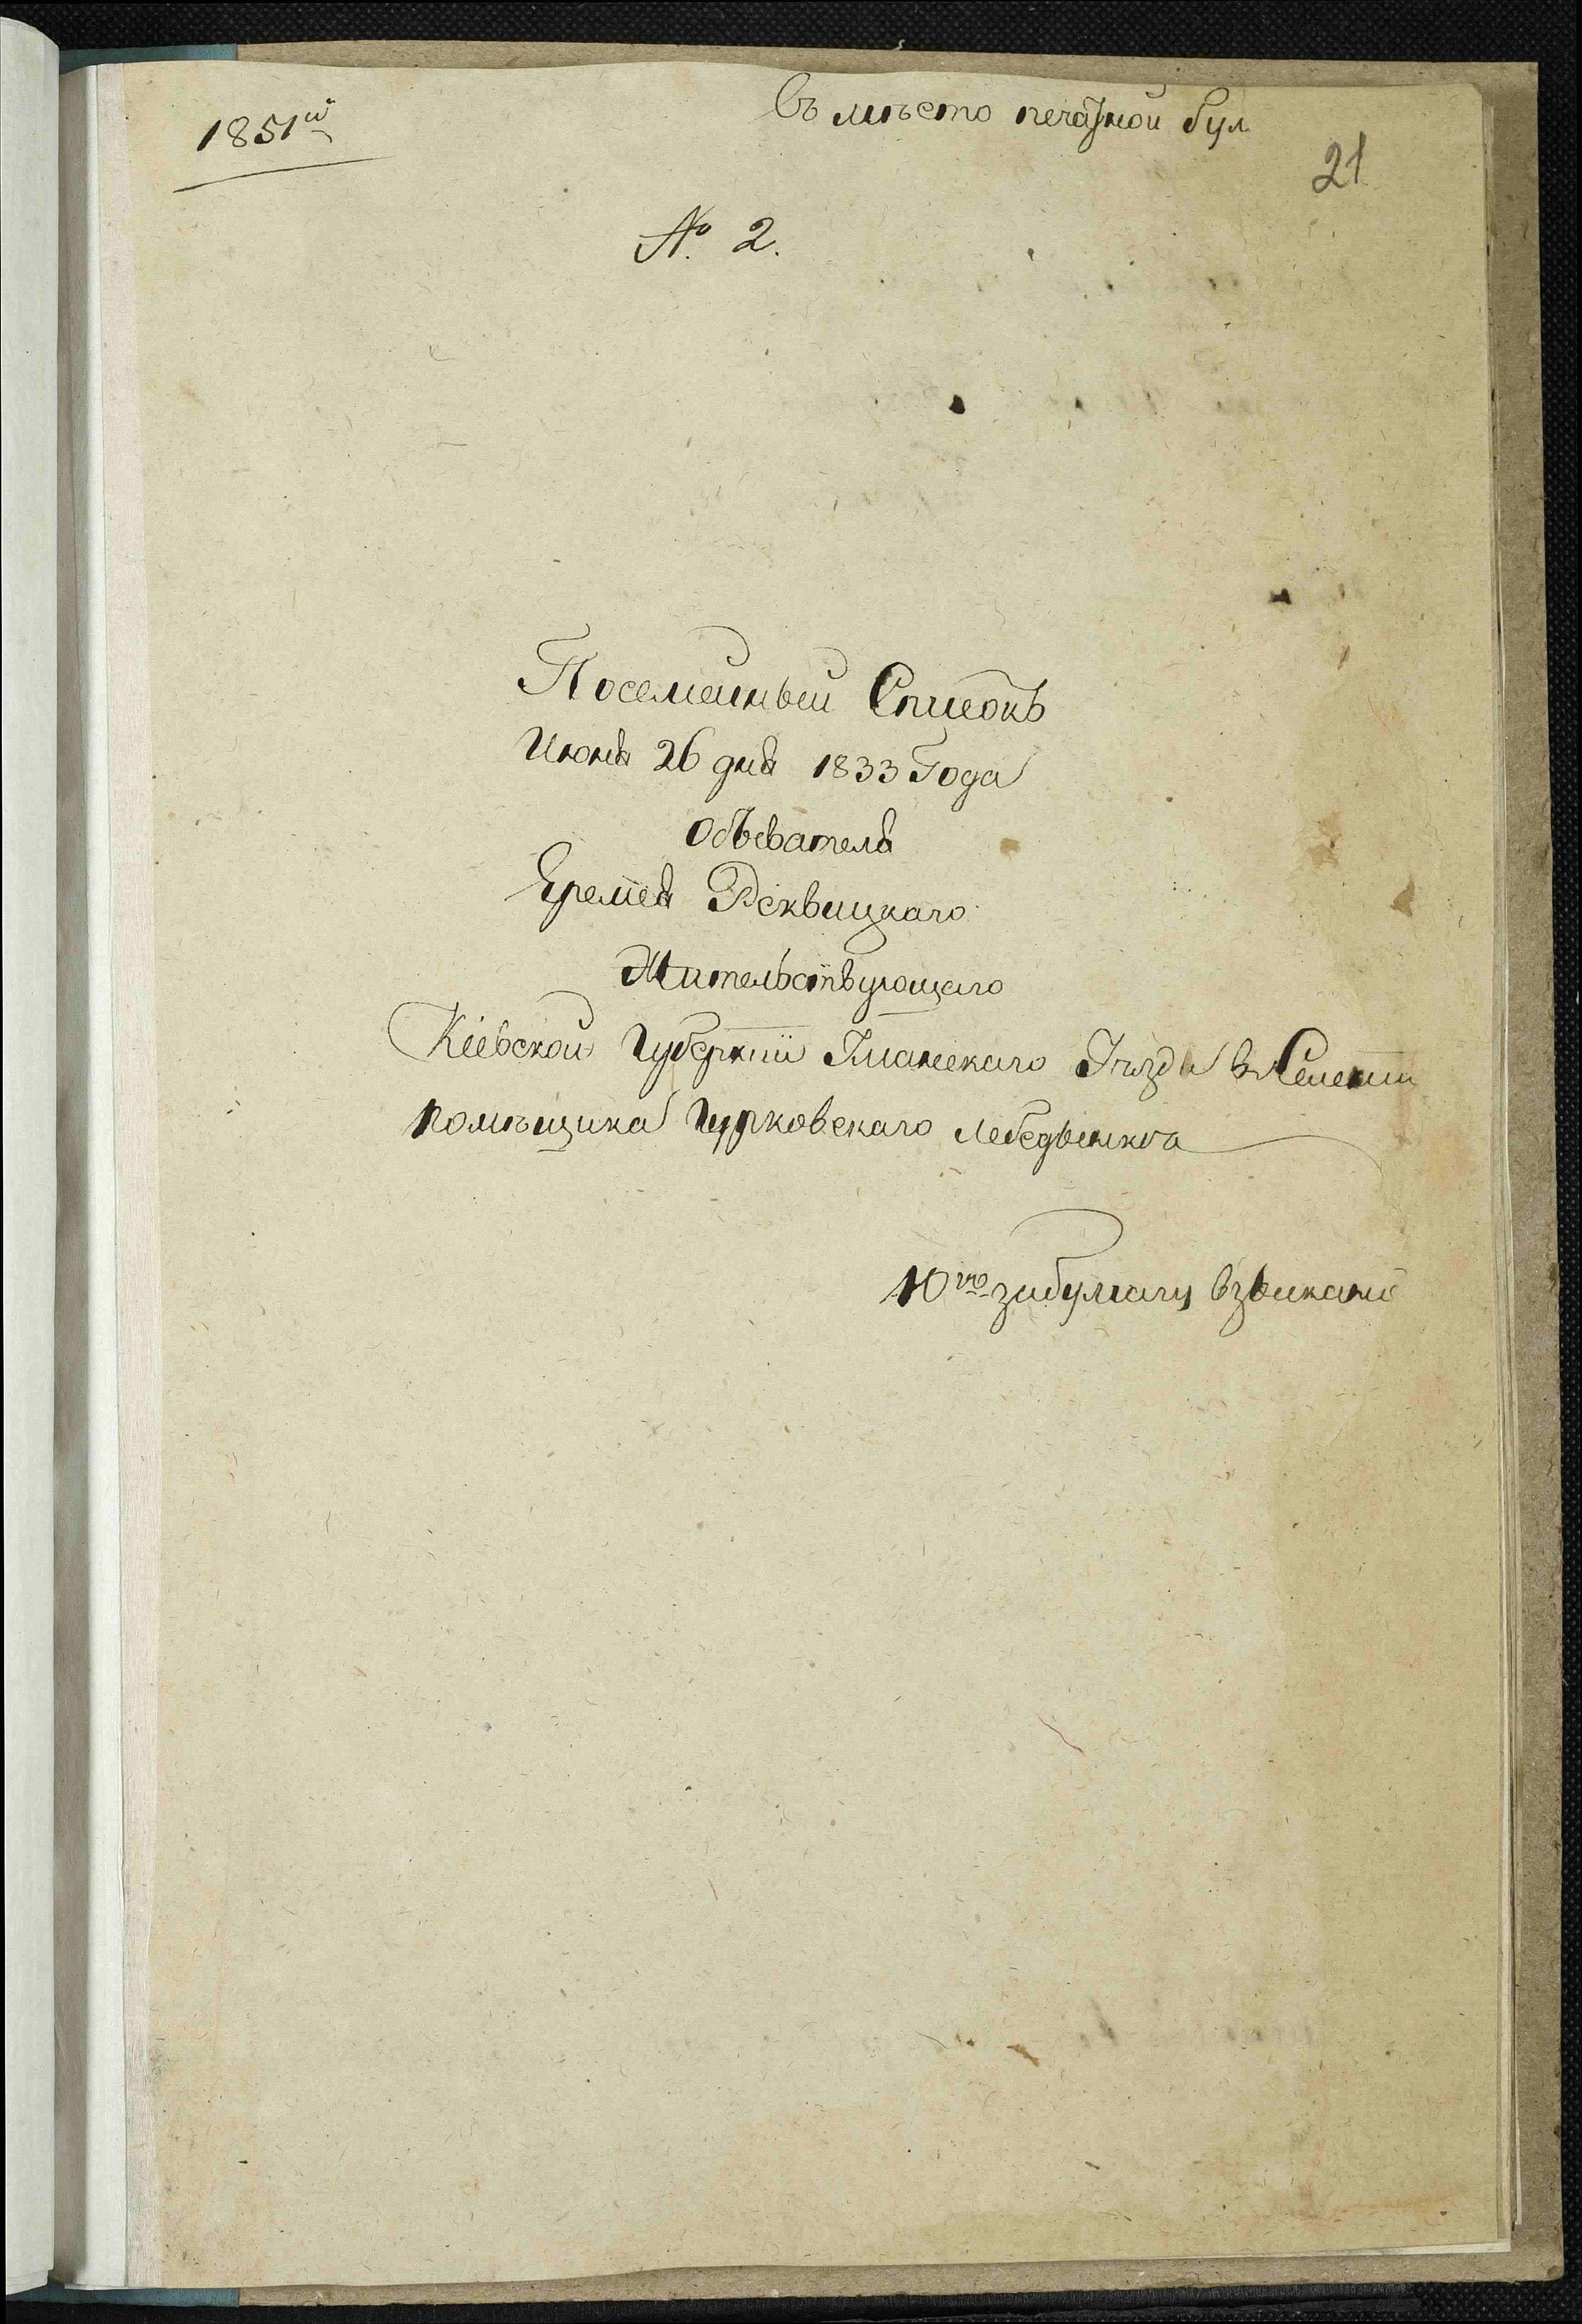 1851й
въ мѣсто печатной бум
21
№ 2.
Посемейный Списокъ
Июня 26 дня 1833 Года
Обывателя
Еремея Рсквицкаго
Жительствующаго
Кіевской Губерніи Уманскаго Уѣзда в
помѣщика Гурковскаго
10го забумагу взыкано